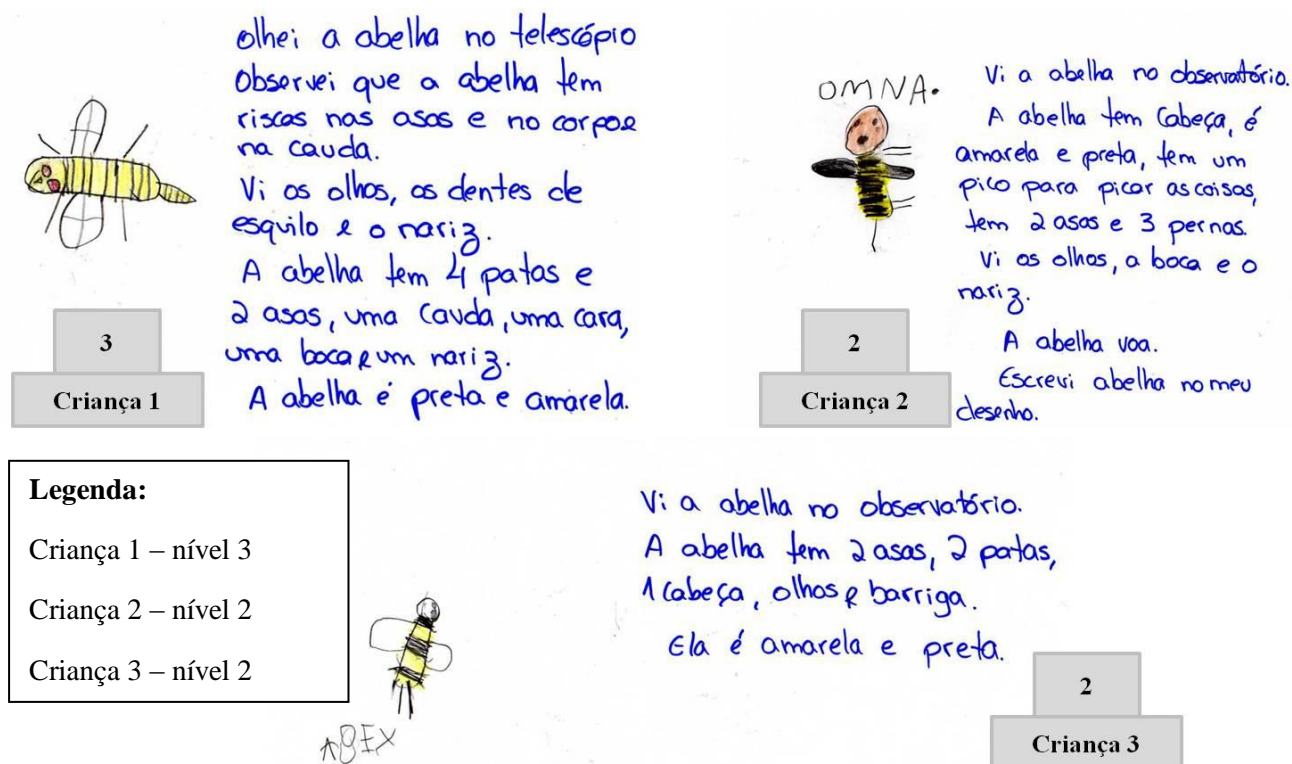 olhei a abelha no telescópio
Observei que a abelha tem
riscos nas asas e no corpo e
na cauda.
Vi os olhos, os dentes de
esquilo e o nariz.
A abelha tem 4 patas e
2 asas, uma cauda, uma cara,
uma boca e um nariz.
A abelha é preta e amarela.
3
Criança 1
OMNA.
Vi a abelha no observatório.
A abelha tem cabeça, é
amarela e preta, tem um
pico para picar as coisas,
tem 2 asas e 3 pernas.
Vi os olhos, a boca e o
nariz.
A abelha voa.
Escrevi abelha no meu
desenho.
2
Criança 2
Legenda:
Criança 1 – nível 3
Criança 2 – nível 2
Criança 3 – nível 2
ABEX
Vi a abelha no observatório.
A abelha tem 2 asas, 2 patas,
1 cabeça, olhos e barriga.
Ela é amarela e preta.
2
Criança 3